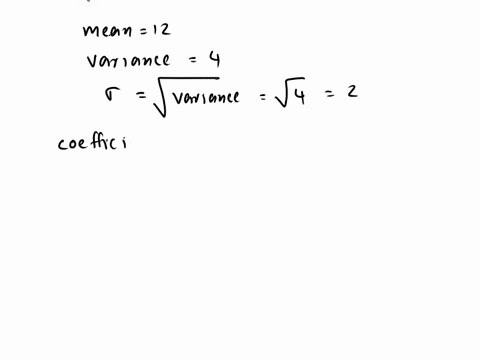 mean = 12
variance = 4
σ = √variance = √4 = 2
coeffici